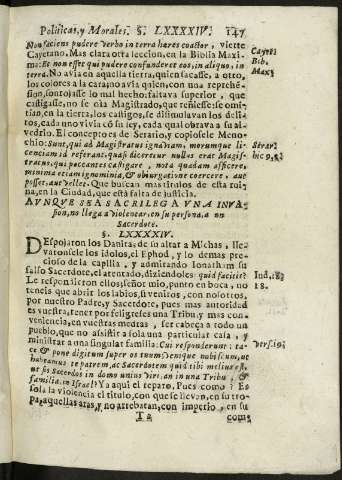 Politicas, y Morales. §. LXXXXIV. 147
Non faciens pudere verbo in terra hæres coactor, viette
Cayetano. Mas clara otra leccion, en la Biblia Maxi-
ma: Et non esset qui pudere confunderet eos, in aliquo, in
terra. No avia en aquella tierra, quien sacasse, a otro,
los colores a la cara; no avia quien, con una reprehē-
sion, sonrojasse lo mal hecho: faltava superior, que
castigasse, no se oìa Magistrado, que reñiesse: se omi-
tian, en la tierra, los castigos, se dissimulavan los deli-
tos, cada uno vivia cō su ley, cada qual obrava a su al-
vedrio. El concepto es de Serario, y copiosele Meno-
chio: Sunt, qui ad Magistratus ignaviam, morumque li-
cenciam id referant, quasi diceretur nullus erat Magis-
tratus, qui peccantes castigare, nota quadam afficere,
minima etiam ignominia, & obiurgatione coercere, aut
posset, aut vellet. Que buscan mas titulos de esta rui-
na, en la Ciudad, que està falta de justicia.
AUNQUE SEA SACRILEGA UNA INVA-
sion, no llega a violencar, en su persona, a un
Sacerdote.
§. LXXXXIV.
DEspojaron los Danitas, de su altar a Michas, lle-
varonsele los idolos, el Ephod, y lo demas pre-
cioso de la capilla, y admirando Ionatham su
falso Sacerdote, el atentado, diziendoles quid facitis?
Le respondieron ellos; señor mio, punto en boca, no
teneis que abrir los labios, si venitos, con nosotros,
por nuestro Padre, y Sacerdote, pues mas autoridad
es vuestra, tener por feligreses una Tribu, y mas con-
veniencia, en vuestras medras, ser cabeça a todo un
pueblo, que no assistir a sola una particular casa, y
ministrar a una singular familia: Cui responderunt: ta-
ce & pone digitum super os tuum, venique nobiscum, ut
habeamus te patrem, ac Sacerdotem quid tibi melius est,
ut sis Sacerdos in domo unius viri, an in una Tribu, &
familia in Israel? Ya aqui el reparo. Pues como? Es
sola la violencia el titulo, con que se llevan, en su tro-
pa, aquellas aras, y no arrebatan, con imperio, en su
T2 com-
Cayet.
Bib.
Max.
Serar.
hic q,5
Iud. 18.
18.
vers. 19.